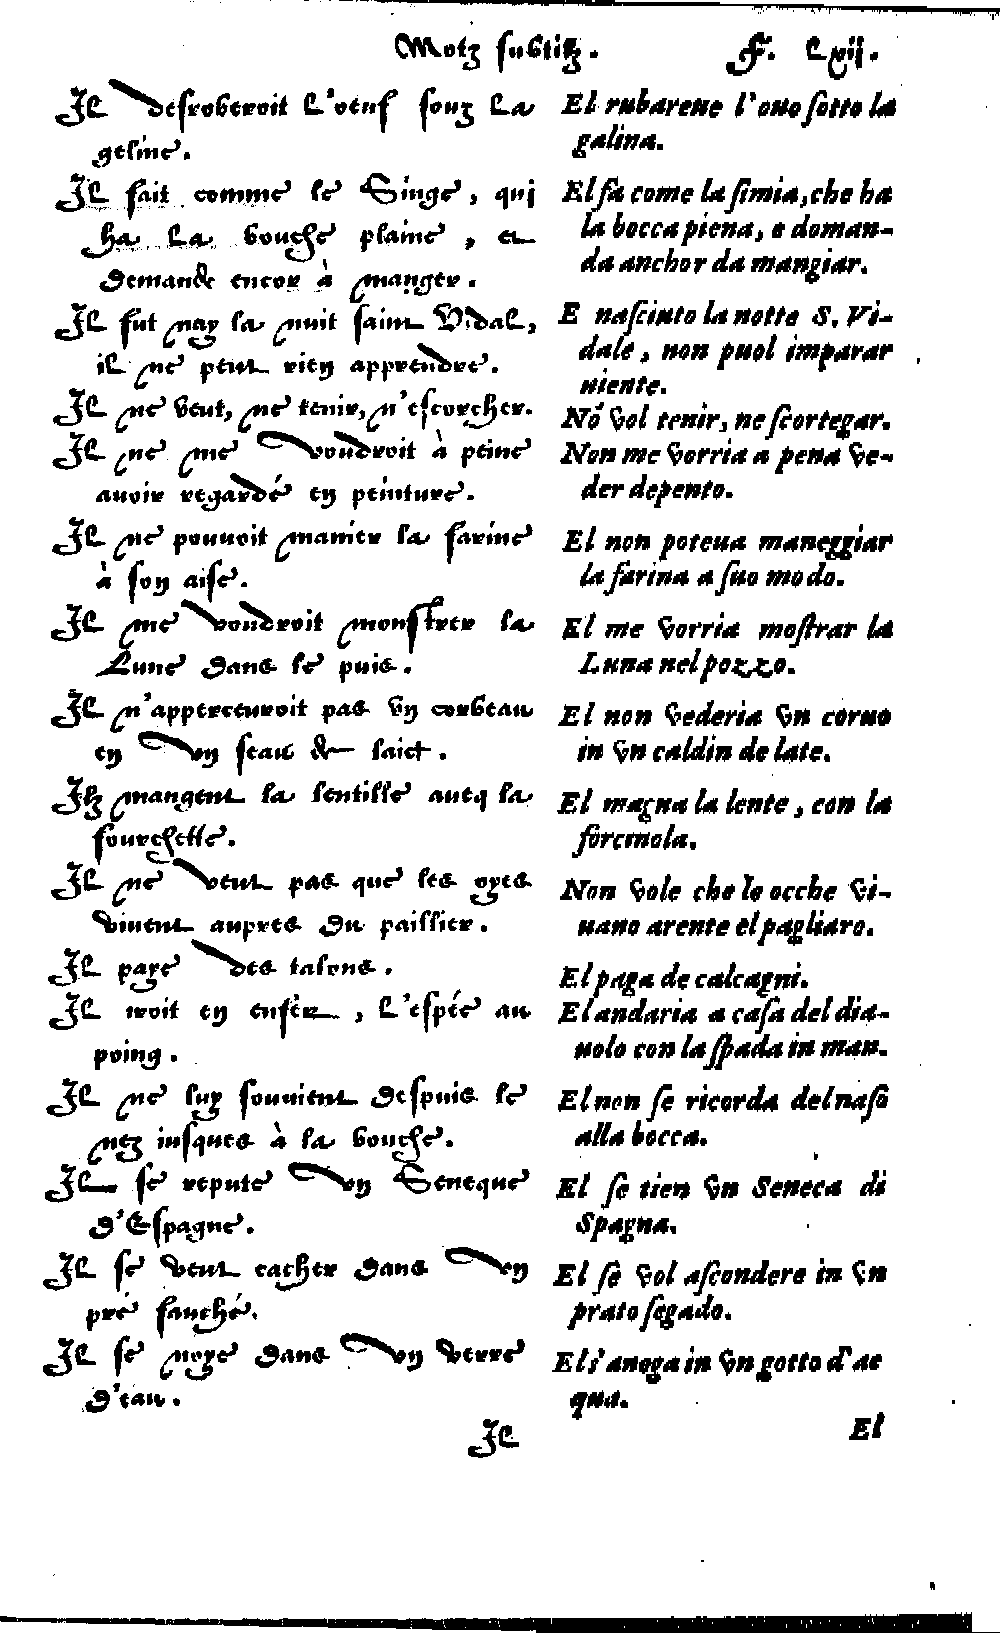 Motz subtilz.
F. Lxij.
Il desroberoit l'oeuf souz la
geline.
Il fait comme le Singe, qui
ha la bouche plaine, et
demande encor à manger.
Il fut nay la nuit saint Vidal,
il ne peut rien apprendre.
Il ne veut, ne tenir, n'escorcher.
Il ne me voudroit à peine
auoir regardé en peinture.
Il ne pouuoit manier la farine
à son aise.
Il me voudroit monstrer la
Lune dans le puis.
Il n'apperceuroit pas vn corbeau
en vn seau de laict.
Ilz mangent la lentille aueq la
fourchette.
Il ne veut pas que les oyes
viuent aupres du paillier.
Il paye des talons.
Il iroit en enfer, l'espée au
poing.
Il ne luy souuient despuis le
nez iusques à la bouche.
Il se repute vn Seneque
d'Espagne.
Il se veut cacher dans vn
pré fauché.
Il se noye dans vn verre
d'eau.
Il
El rubareue l'ouo sotto la
galina.
El fa come la simia, che ha
la bocca piena, e doman-
da anchor da mangiar.
E nasciuto la notte S. Vi-
dale, non puol imparar
niente.
Nō vol tenir, ne scortegar.
Non me vorria a pena ve-
der depento.
El non poteua maneggiar
la farina a suo modo.
El me vorria mostrar la
Luna nel pozzo.
El non vederia vn coruo
in vn caldin de late.
El magna la lente, con la
forcinola.
Non vole che le ocche vi-
uano arente el pagliaro.
El paga de calcagni.
El andaria a casa del dia-
uolo con la spada in man.
El non se ricorda del naso
alla bocca.
El se tien vn Seneca di
Spagna.
El se vol ascondere in vn
prato segado.
El s'anega in vn gotto d'ac
qua.
El